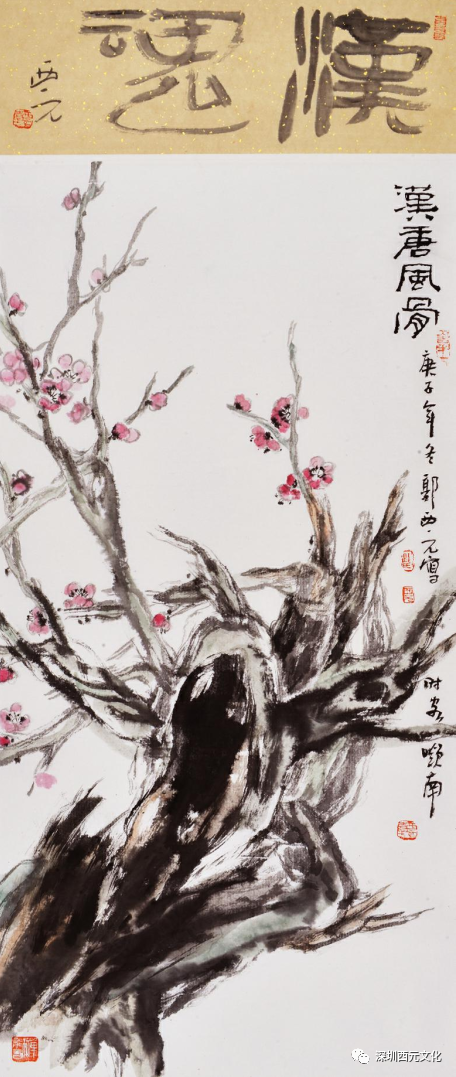 漢魂
西元
漢唐風骨
庚子年冬郭西元寫
时客嶺南
深圳西元文化